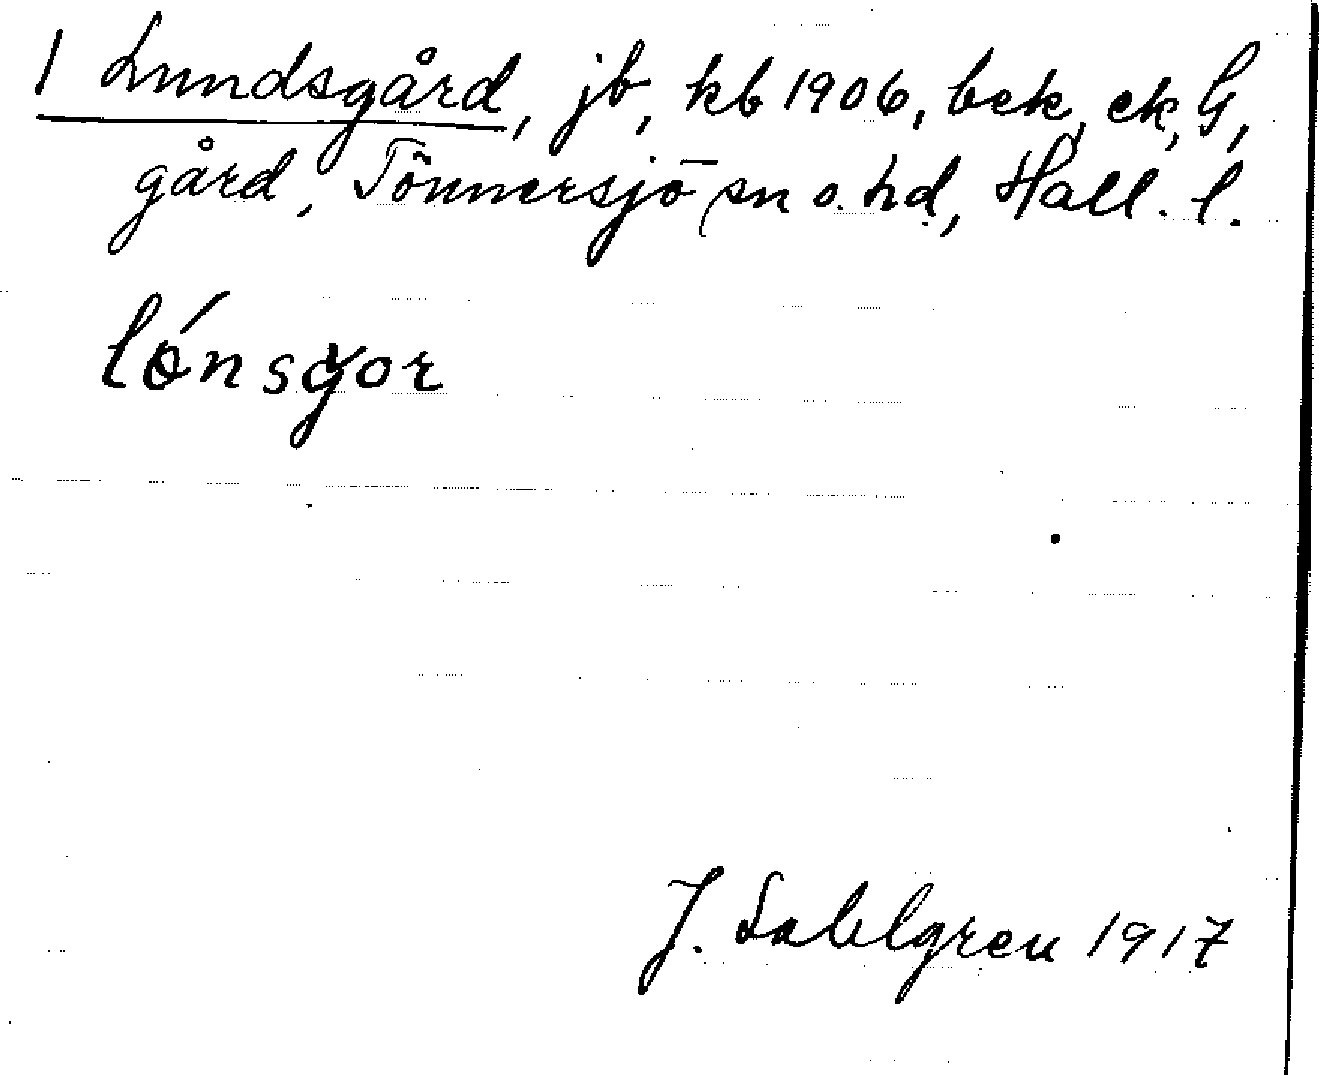 1 Lundsgård, jb, kb 1906, bek, ek, G,
gård, Tönnersjö sn o. hd, Hall. l.
lónsgor
J. Sahlgren 1917